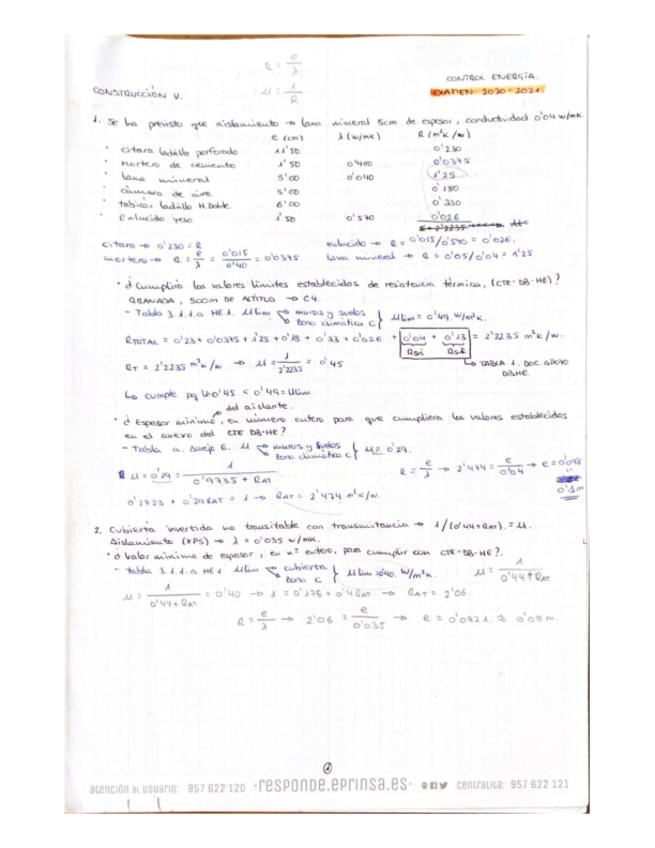 R = e/λ
CONTROL ENERGÍA.
CONSTRUCCIÓN V.
U = 1/R
EXAMEN 2020-2021
1. Se ha previsto que aislamiento → lana mineral 5cm de espesor, conductividad 0'04 w/mk.
e (cm) λ (w/mk) R (m²k/w)
· citara ladrillo perforado 11'50 0'230
· mortero de cemento 1'50 0'400 0'0375
· lana mineral 5'00 0'040 1'25
· cámara de aire 5'00 0'180
· tabicón ladrillo H.Doble 6'00 0'330
· enlucido yeso 1'50 0'570 0'026
citara → 0'230 = R enlucido → R = 0'015/0'570 = 0'026.
mortero → R = e/λ = 0'015/0'40 = 0'0375 lana mineral → R = 0'05/0'04 = 1'25
· ¿ Cumpliría los valores límites establecidos de resistencia térmica, (CTE-DB-HE)?
GRANADA, 500m DE ALTITUD → C4.
- Tabla 3.1.1.a HE1. Ulim muros y suelos zona climática C } Ulim = 0'49. W/m²k.
RTOTAL = 0'23 + 0'0375 + 1'25 + 0'18 + 0'33 + 0'026 + 0'04 + 0'13 = 2'2235 m²k/w.
Rsi Rse
RT = 2'2235 m²k/w → U = 1/2'2235 = 0'45
↳ TABLA 1. DOC. APOYO DBHE.
↳ cumple pq U=0'45 < 0'49=Ulim.
del aislante.
· ¿ Espesor mínimo, en número entero para que cumpliera los valores establecidos
en el anexo del CTE DB-HE?
- Tabla a. Anejo E. U muros y suelos zona climática C } U = 0'29.
U = 0'29 = 1/0'9735 + RAT R = e/λ → 2'474 = e/0'04 → e = 0'098
0'1m
0'2823 + 0'29RAT = 1 → RAT = 2'474 m²k/w.
2. Cubierta invertida no transitable con transmitancia → 1/(0'44+RAT) = U.
Aislamiento (XPS) → λ = 0'035 w/mk.
· ¿ Valor mínimo de espesor, en nº entero, para cumplir con CTE-DB-HE?.
- tabla 3.1.1.a HE1 Ulim cubierta zona C } Ulim = 0'40. W/m²k. U = 1/0'44+RAT
U = 1/0'44+RAT = 0'40 → 1 = 0'176 + 0'4RAT → RAT = 2'06.
R = e/λ → 2'06 = e/0'035 → e = 0'0721 ≈ 0'08m.
1
atención al usuario: 957 622 120 ·responde.eprinsa.es· centralita: 957 622 121